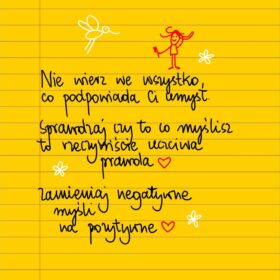 Nie wierz we wszystko,
co podpowiada Ci umysł
Sprawdzaj czy to co myślisz
to rzeczywiście uczciwa
prawda
Zamieniaj negatywne
myśli
na pozytywne